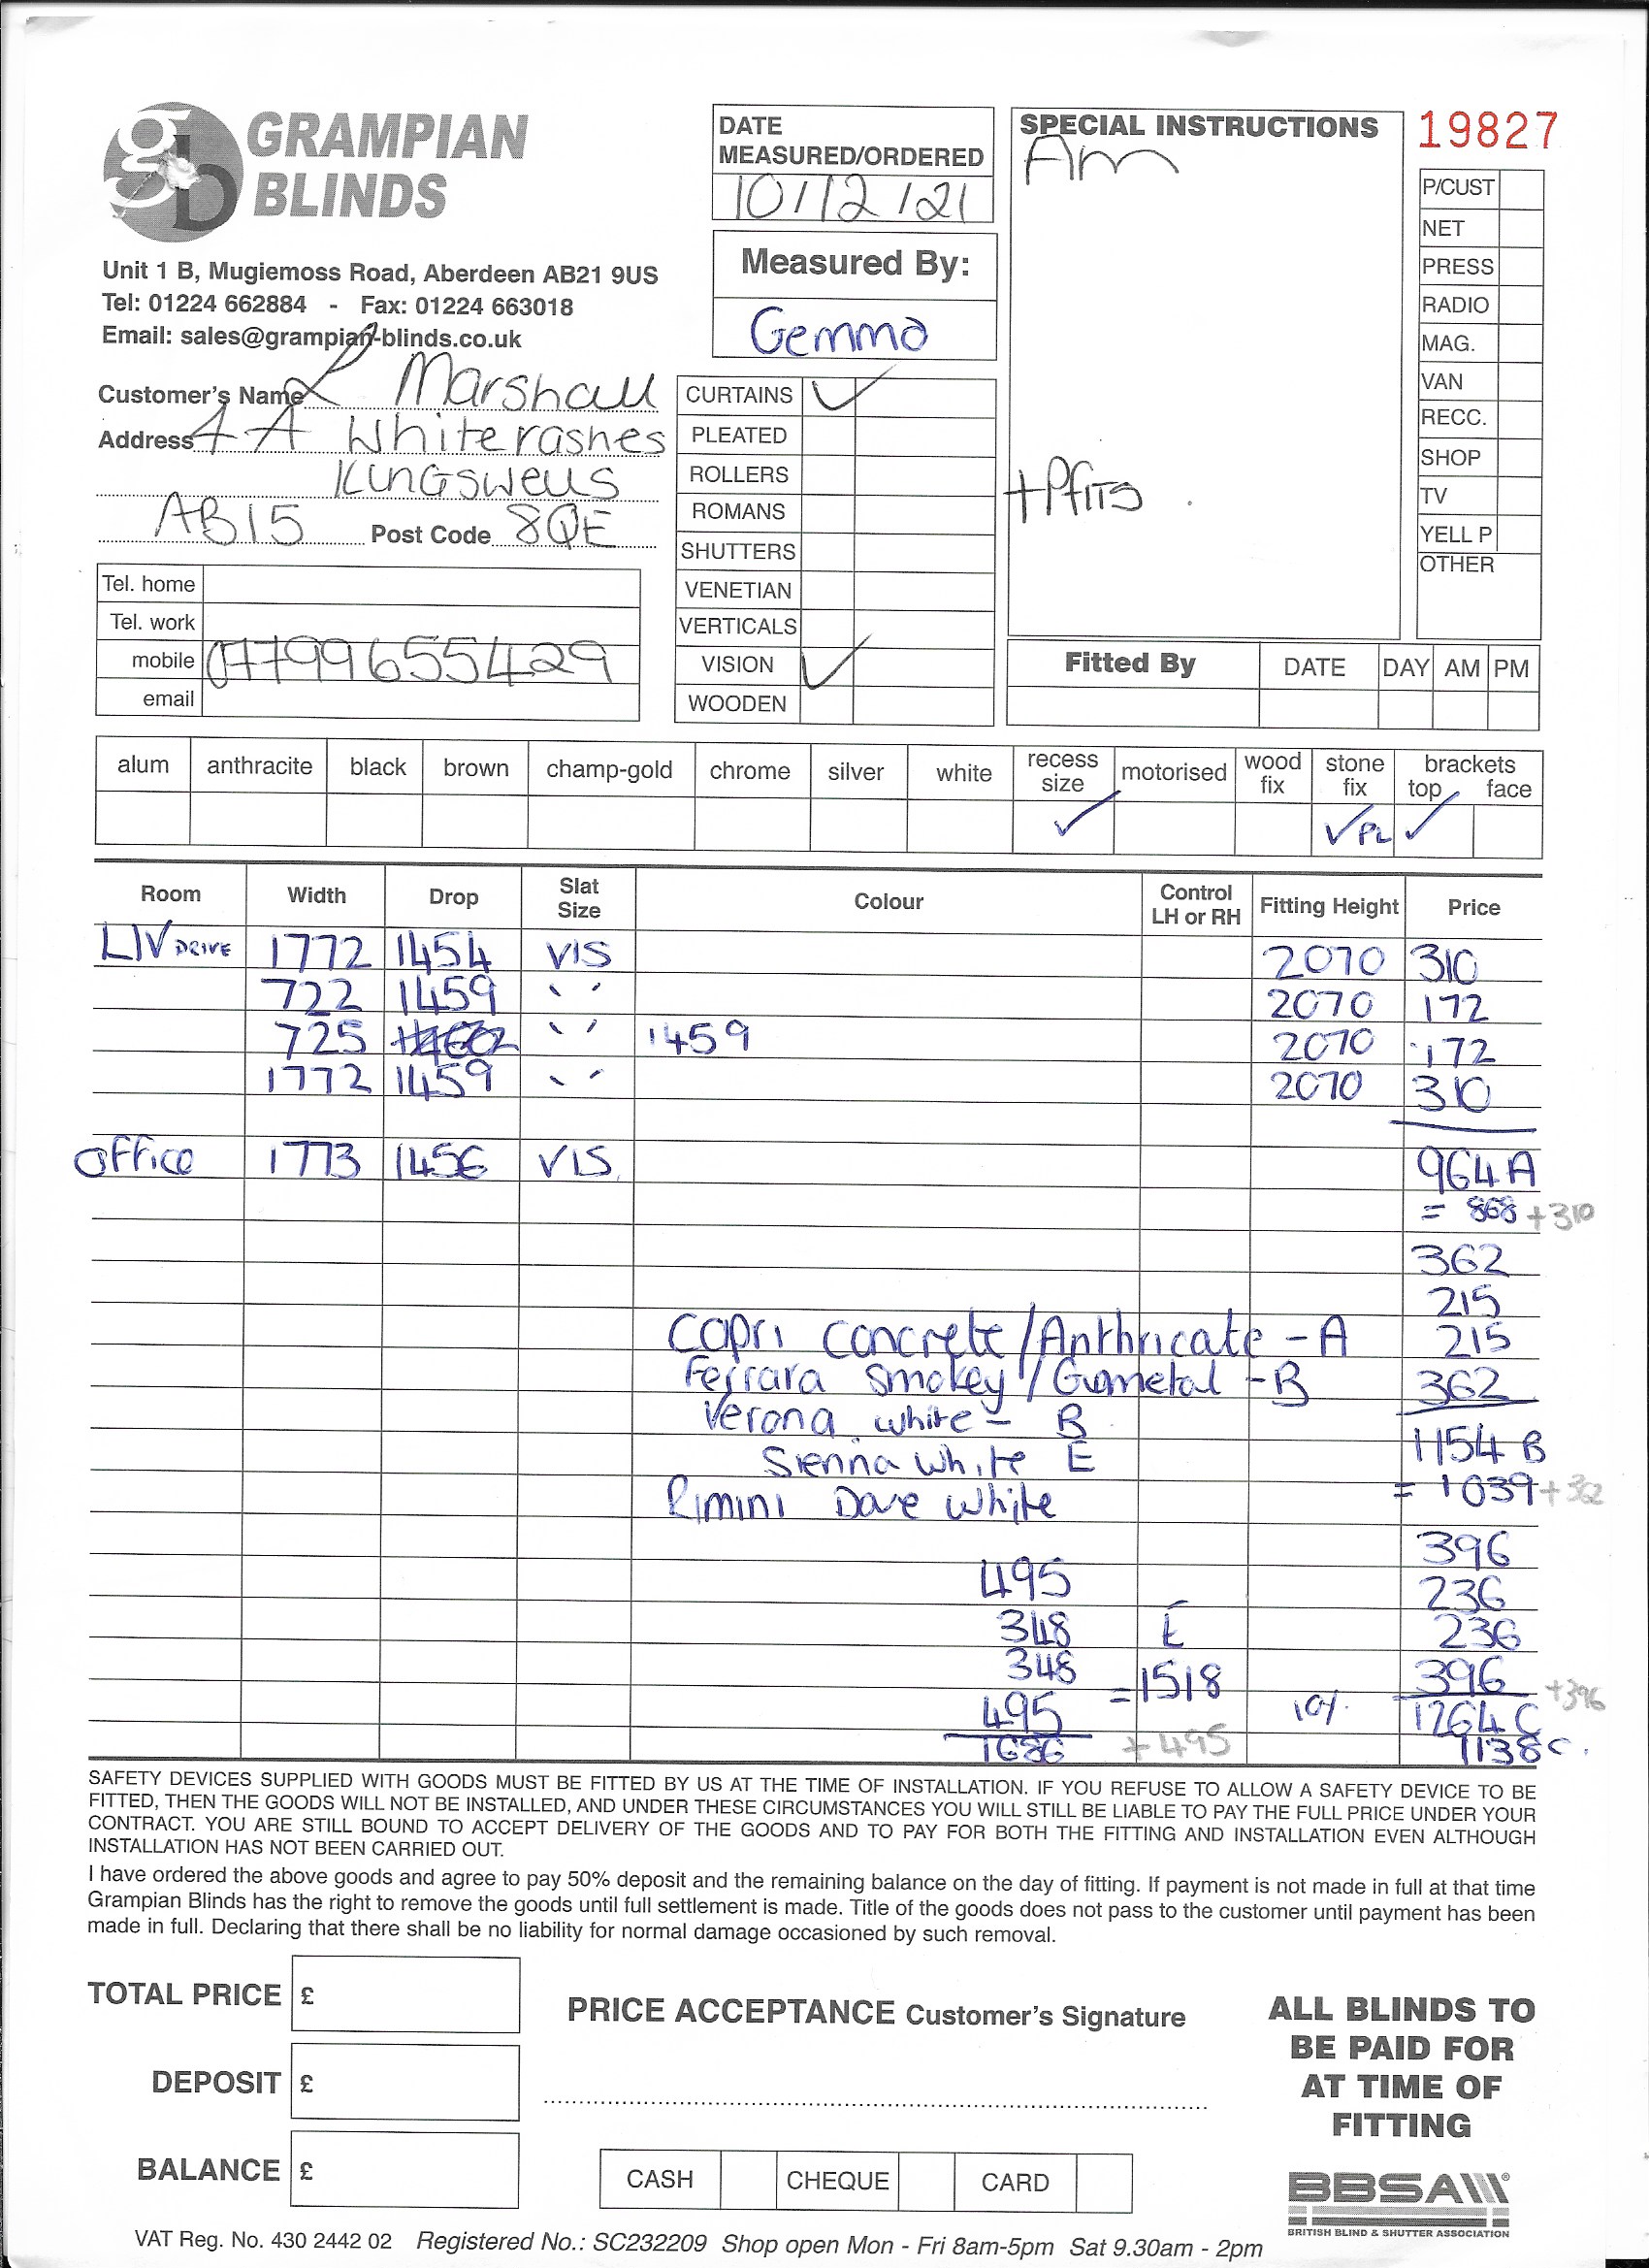 GRAMPIAN
BLINDS
Unit 1 B, Mugiemoss Road, Aberdeen AB21 9US
Tel: 01224 662884 - Fax: 01224 663018
Email: sales@grampian-blinds.co.uk
Customer's Name L Marshall
Address 4 A Whiterashes
Kingswells
AB15 Post Code 8QE
Tel. home
Tel. work
mobile 07799655429
email
DATE
MEASURED/ORDERED
10/12/21
Measured By:
Gemma
CURTAINS ✓
PLEATED
ROLLERS
ROMANS
SHUTTERS
VENETIAN
VERTICALS
VISION ✓
WOODEN
SPECIAL INSTRUCTIONS
Am
+Pfits
19827
P/CUST
NET
PRESS
RADIO
MAG.
VAN
RECC.
SHOP
TV
YELL P
OTHER
Fitted By DATE DAY AM PM
alum anthracite black brown champ-gold chrome silver white recess size motorised wood fix stone fix brackets top face
✓ ✓ PL ✓
Room Width Drop Slat Size Colour Control LH or RH Fitting Height Price
LIV DRIVE 1772 1454 VIS 2070 310
722 1459 " 2070 172
725 " 1459 2070 172
1772 1459 " 2070 310
Office 1773 1456 VIS 964 A
= 868 +310
362
215
Capri Concrete/Anthricate - A 215
Ferrara Smokey / Gumetal - B 362
Verona white - B 1154 B
Sienna White E = 1039 +362
Rimini Dove White
396
495 236
348 E 236
348 = 1518 396 +396
495 10% 1264 C
1686 + 495 1138 C.
SAFETY DEVICES SUPPLIED WITH GOODS MUST BE FITTED BY US AT THE TIME OF INSTALLATION. IF YOU REFUSE TO ALLOW A SAFETY DEVICE TO BE
FITTED, THEN THE GOODS WILL NOT BE INSTALLED, AND UNDER THESE CIRCUMSTANCES YOU WILL STILL BE LIABLE TO PAY THE FULL PRICE UNDER YOUR
CONTRACT. YOU ARE STILL BOUND TO ACCEPT DELIVERY OF THE GOODS AND TO PAY FOR BOTH THE FITTING AND INSTALLATION EVEN ALTHOUGH
INSTALLATION HAS NOT BEEN CARRIED OUT.
I have ordered the above goods and agree to pay 50% deposit and the remaining balance on the day of fitting. If payment is not made in full at that time
Grampian Blinds has the right to remove the goods until full settlement is made. Title of the goods does not pass to the customer until payment has been
made in full. Declaring that there shall be no liability for normal damage occasioned by such removal.
TOTAL PRICE £
DEPOSIT £
BALANCE £
PRICE ACCEPTANCE Customer's Signature
CASH CHEQUE CARD
ALL BLINDS TO
BE PAID FOR
AT TIME OF
FITTING
BBSA
BRITISH BLIND & SHUTTER ASSOCIATION
VAT Reg. No. 430 2442 02 Registered No.: SC232209 Shop open Mon - Fri 8am-5pm Sat 9.30am - 2pm